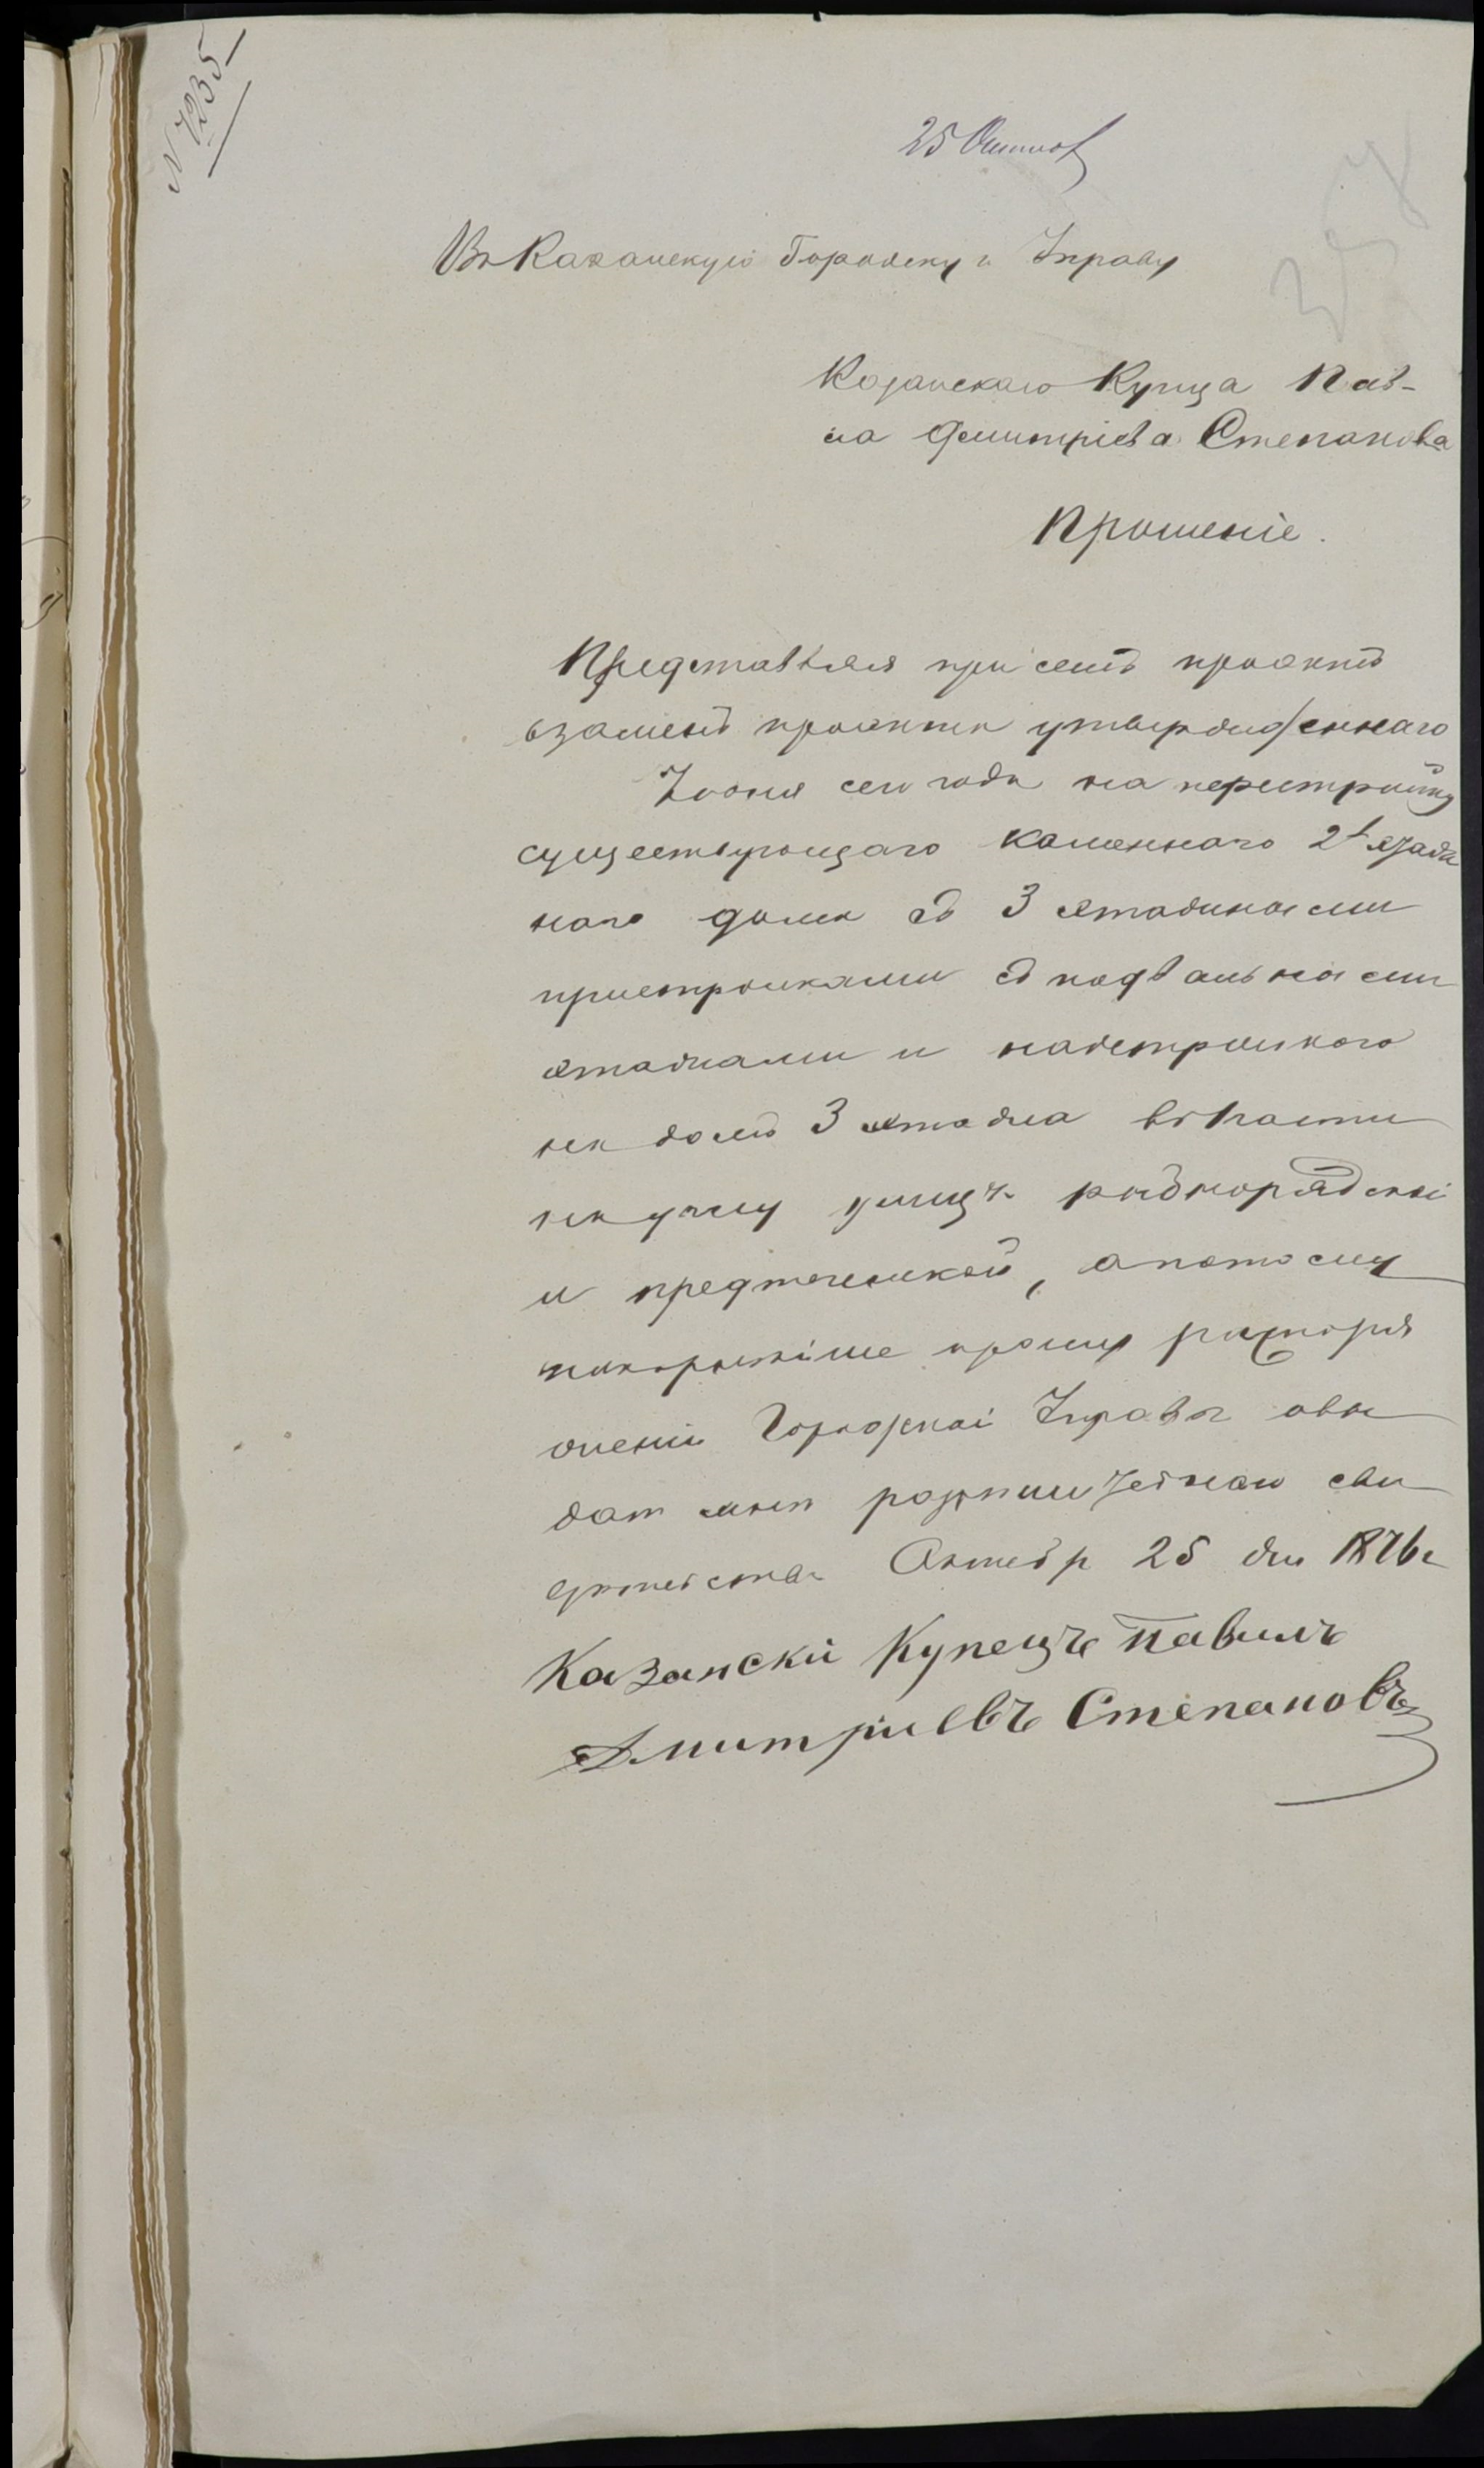 N 7235
25 Октяб
Въ Казанскую Городскую Управу
Казанскаго Купца Пав-
ла Дмитріева Степанова
Прошеніе.
Представляя при семъ проэктъ
взаменъ проэкта утвержденнаго
Іюня сего года на перестройку
существующаго каменнаго 2х этаж
наго дома съ 3 этажными
пристройками съ подвальными
этажами и надстройкою
на домъ 3 этажа въ части
на углу улицъ рыбнорядской
и предтеченской, а потому
покорнейше прошу распоря
жении Городской Управы овы
дат мне разрешительнаго сви
детельства Октебр 25 дня 1876 г
Казанский Купецъ Павилъ
Дмитриевъ Степановъ